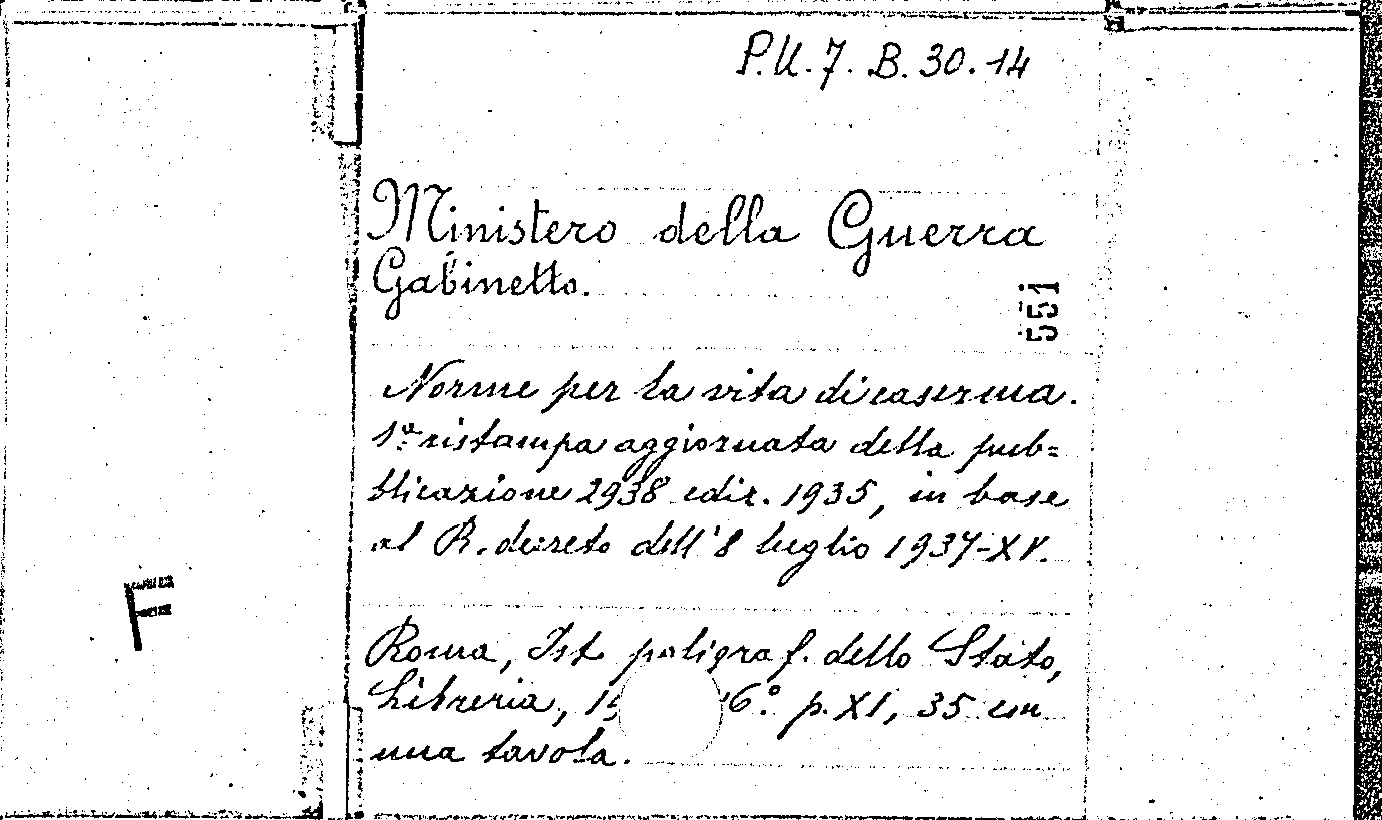 P.U.7. B. 30.14
Ministero della Guerra
Gabinetto.
551
Norme per la vita di caserma.
1ª ristampa aggiornata della pub=
blicazione 2938 ediz. 1935, in base
al R. decreto dell'8 luglio 1937-XV.
F
Roma, Ist. poligraf. dello Stato,
Libreria, 6° p. XI, 35 cm
una tavola.